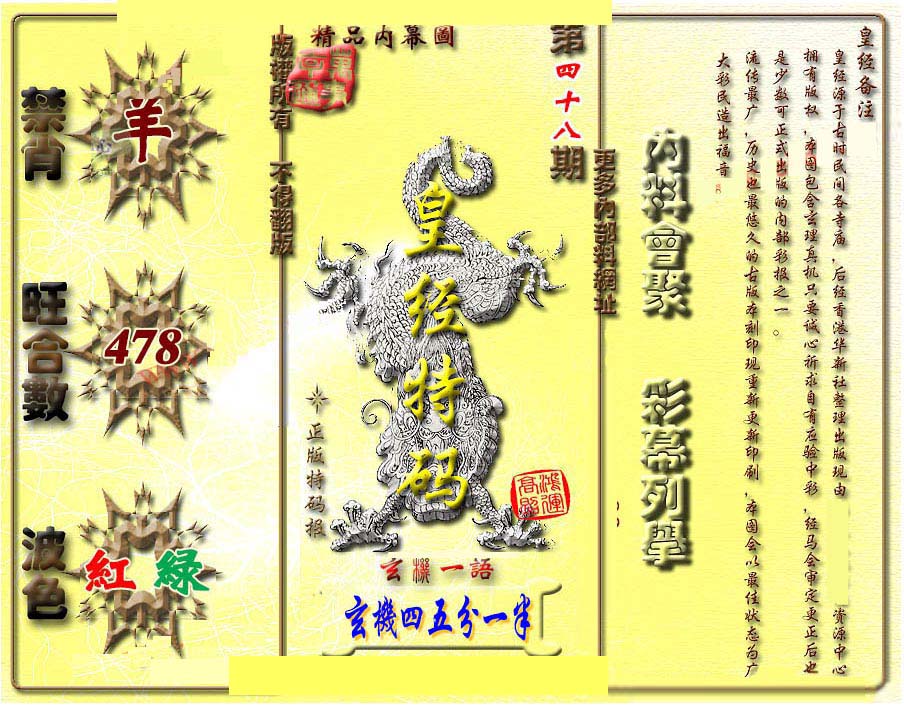 精品内幕圖
第四十八期
版權所有 不得翻版
更多內部料網址
禁肖
羊
旺合數
478
波色
紅 綠
皇经特码
正版特码报
鴻運高照
玄機一語
玄機四五分一半
內料會聚
彩幕列舉
皇经备注
皇经源于古时民间各寺庙,后经香港华新社整理出版现由 资源中心
拥有版权,本图包含玄理真机只要诚心祈求自有应验中彩,经马会审定更正后也
是少数可正式出版的内部彩报之一。
流传最广,历史也最悠久的古版本刻印现重新更新印刷,本图会以最佳状态为广
大彩民造出福音。